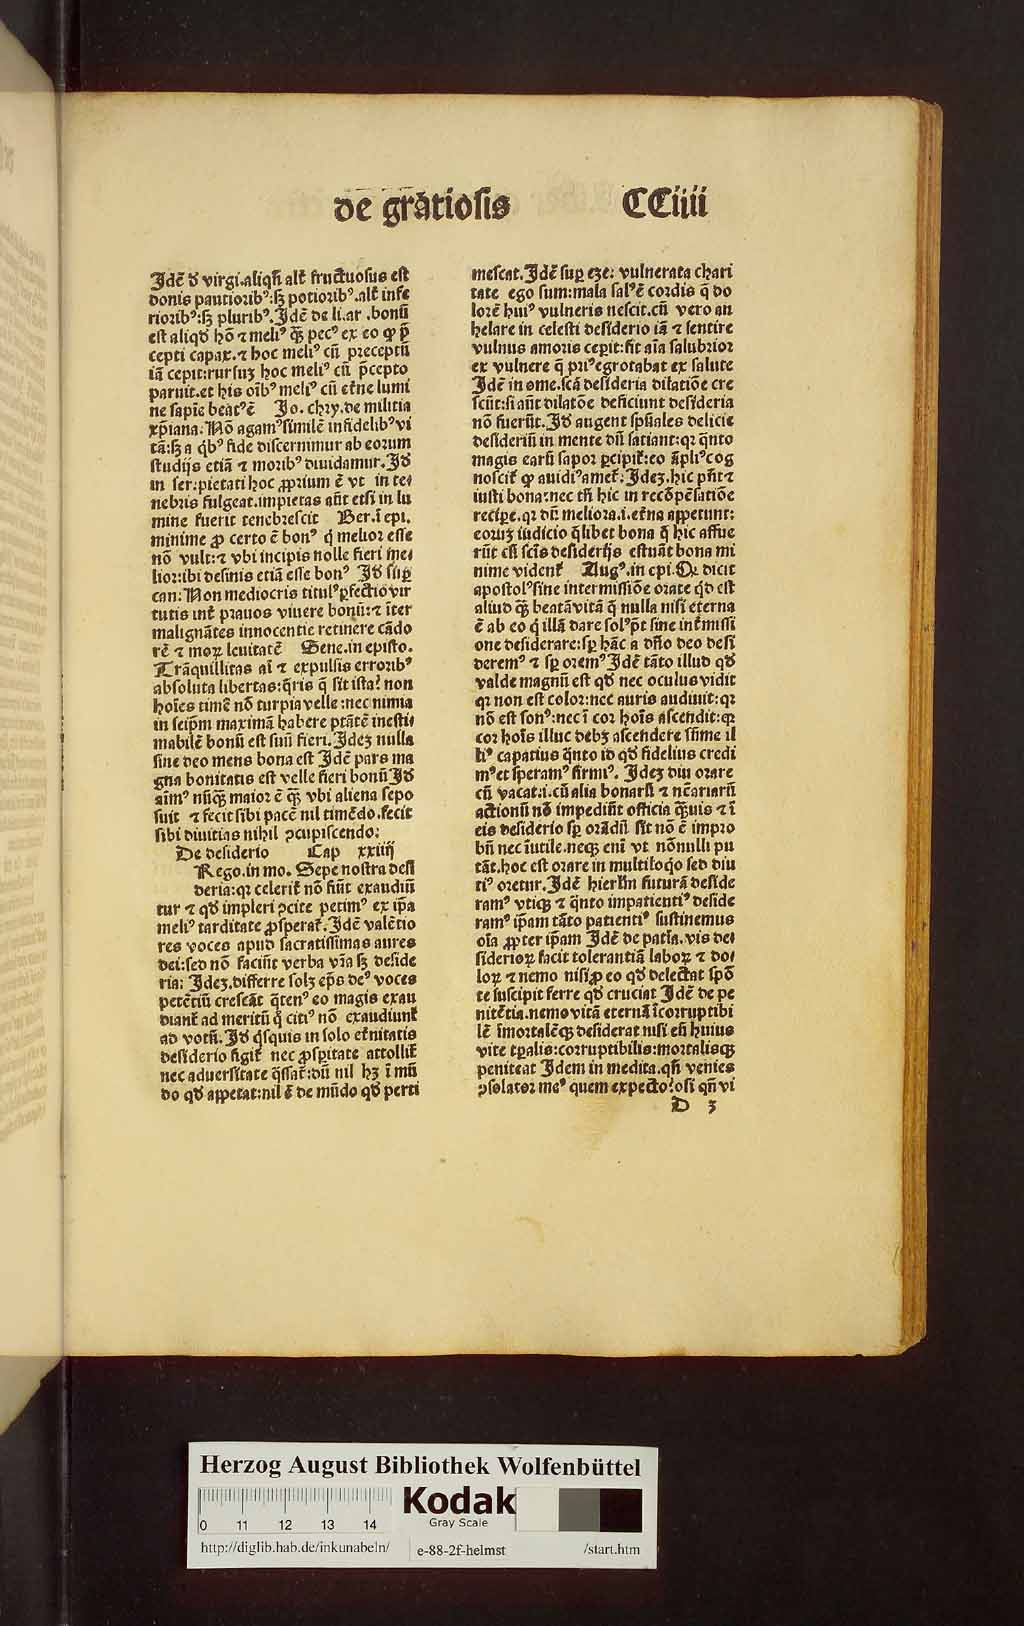 de grãtiosis CCiiii
Jdẽ ð virgi.aliqñ alt̃ fructuosus est
donis pautiorib⁹:sꝫ potiorib⁹.alt̃ infe
riorib⁹:sꝫ plurib⁹.Jdẽ de li.ar .bonũ
est aliqð hõ ⁊ meli⁹ q̃ꝫ pec⁹ ex eo ꝙ p̱̃
cepti capax.⁊ hoc meli⁹ cũ preceptũ
iã cepit:rursuꝫ hoc meli⁹ cũ p̃cepto
paruit.et his oĩb⁹ meli⁹ cũ et̃ne lumi
ne sapiẽ beat⁹ẽ Jo. chry.de militia
xp̃iana.Nõ agam⁹similẽ infidelib⁹vi
tã:sꝫ a q̇b⁹ fide discernimur ab eorum
studijs etiã ⁊ morib⁹ diuidamur.Jð
in ser:pietati hoc ꝓprium ẽ vt in te⸗
nebris fulgeat.impietas añt etsi in lu
mine fuerit tenebrescit Ber.ĩ epi.
minime ꝓ certo ẽ bon⁹ q̇ melior esse
nõ vult:⁊ vbi incipis nolle fieri me⸗
lior:ibi desinis etiã esse bon⁹ Jð suꝑ
can:Non mediocris titul⁹ꝑfectio vir
tutis int̃ prauos viuere bonũ:⁊ ĩter
malignãtes innocentie retinere cãdo
rẽ ⁊ moꝝ leuitatẽ Sene.in episto.
Trãquillitas aĩ ⁊ expulsis errorib⁹
absoluta libertas:q̃ris q̃ sit ista? non
hoĩes timẽ nõ turpia velle:nec nimia
in seip̃m maximã habere ptãtẽ inesti⸗
mabilẽ bonũ est suũ fieri.Jdeꝫ nulla
sine deo mens bona est Jdẽ pars ma
gna bonitatis est velle fieri bonũ Jð
aĩm⁹ nũq̃ꝫ maior ẽ q̃ꝫ vbi aliena sepo
suit ⁊ fecit sibi pacẽ nil timẽdo.fecit
sibi diuitias nihil ꝯcupiscendo:
De desiderio Cap xxiiij
Rego.in mo. Sepe nostra desi
deria:qꝛ celerit̃ nõ fiũt exaudiũ
tur ⁊ qð impleri ꝯcite petim⁹ ex ip̃a
meli⁹ tarditate ꝓsperat̃.Jdẽ valẽtio
res voces apud sacratissimas aures
dei:sed nõ faciũt verba vr̃a sꝫ deside
ria: Jdeꝫ.differre solꝫ ep̃s de⁹ voces
petẽtiũ crescãt q̃ten⁹ eo magis exau
diant̃ ad meritũ q̃ citi⁹ nõ exaudiunt̃
ad votũ.Jð q̇squis in solo et̃nitatis
desiderio figit̃ nec ꝓsꝑitate attollit̃
nec aduersitate q̃ssat̃:dũ nil hꝫ ĩ mũ
do qð appetat:nil ẽ de mũdo qð perti
mescat.Jdẽ suꝑ eze: vulnerata chari
tate ego sum:mala sal⁹ẽ cordis q̃ do
lorẽ hui⁹ vulneris nescit.cũ vero an
helare in celesti desiderio iã ⁊ sentire
vulnus amoris cepit:fit aĩa salubrior
ex vulnere q̃ pri⁹egrotabat ex salute
Jdẽ in ome.scã desideria dilatiõe cre
scũt:si añt dilatõe deficiunt desideria
nõ fuerũt.Jð augent spũales delicie
desideriũ in mente dũ satiant:qꝛ q̃nto
magis earũ sapor ꝑcipit̃:eo ãpli⁹cog
noscit̃ ꝙ auidi⁹amet̃.Jdeꝫ.hic pñt ⁊
iusti bona:nec tñ hic in recõpẽsatiõe
recipe.qꝛ dũ meliora.i.et̃na appetunt:
eoruꝫ iudicio q̃libet bona q̃ hic afflue
rũt cũ scĩs desiderijs estuãt bona mi
nime vident̃ Aug⁹.in epi.Qꝛ dicit
apostol⁹sine intermissiõe orate qð est
aliud q̃ꝫ beatãvitã q̃ nulla nisi eterna
ẽ ab eo q̇ illã dare sol⁹põt sine int̃missi
one desiderare:sꝑ hãc a dño deo desi
derem⁹ ⁊ sꝑ orem⁹ Jdẽ tãto illud qð
valde magnũ est qð nec oculus vidit
qꝛ non est color:nec auris audiuit:qꝛ
nõ est son⁹:nec ĩ cor hoĩs ascendit:qꝛ
cor hoĩs illuc debꝫ ascendere sũme il
li⁹ capatius q̃nto id qð fidelius credi
m⁹et speram⁹ firmi⁹. Jdeꝫ diu orare
cũ vacat.i.cũ alia bonarũ ⁊ nẽariarũ
actionũ nõ impediũt officia q̃ꝫuis ⁊ ĩ
eis desiderio sꝑ orãdũ sit nõ ẽ impro
bũ nec ĩutile.neqꝫ enĩ vt nõnulli pu
tãt.hoc est orare in multiloq̃o sed diu
ti⁹ oretur.Jdẽ hierl̃m futurã deside
ram⁹ vtiqꝫ ⁊ q̃nto impatienti⁹ deside
ram⁹ ip̃am tãto patienti⁹ sustinemus
oĩa ꝓpter ip̃am Jdẽ de pat̃ia.vis de⸗
sideriorꝝ facit tolerantiã laboꝝ ⁊ do⸗
loꝝ ⁊ nemo nisi ꝓ eo qð delectat spõ
te suscipit ferre qð cruciat Jdẽ de pe
nitẽtia.nemo vitã eternã ĩcorruptibi
lẽ ĩmortalẽqꝫ desiderat nisi eũ huius
vite tꝑalis:corruptibilis:mortalisqꝫ
peniteat Jdem in medita.qñ venies
ꝯsolator me⁹ quem expecto?osi qñ vi
D 3
Herzog August Bibliothek Wolfenbüttel
0 11 12 13 14
Kodak
Gray Scale
http://diglib.hab.de/inkunabeln/ e-88-2f-helmst /start.htm